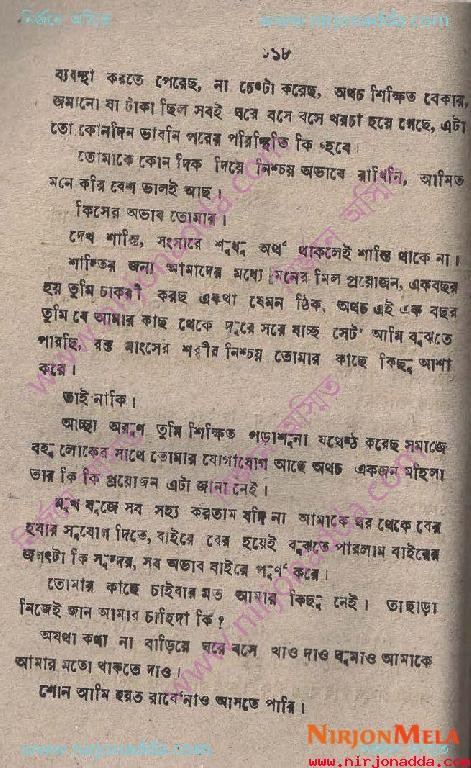 নির্জনে অস্মিত www.nirjonadda.com
১১৮
ব্যবস্থা করতে পেরেছ, না চেষ্টা করেছ, অথচ শিক্ষিত বেকার,
জমানো যা টাকা ছিল সবই ঘরে বসে বসে খরচা হয়ে গেছে, এটা
তো কোনদিন ভাবনি পরের পরিস্থিতি কি হবে।
তোমাকে কোন দিক দিয়ে নিশ্চয় অভাবে রাখিনি, আমিত
মনে করি বেশ ভালই আছ।
কিসের অভাব তোমার।
দেখ শান্তি, সংসারে শুধু অর্থ থাকলেই শান্তি থাকে না।
শান্তির জন্য আমাদের মধ্যে মনের মিল প্রয়োজন, একবছর
হয় তুমি চাকরী করছ একথা যেমন ঠিক, অথচ এই এক বছর
তুমি যে আমার কাছ থেকে দূরে সরে যাচ্ছ সেট আমি বুঝতে
পারছি, রক্ত মাংসের শরীর নিশ্চয় তোমার কাছে কিছু আশা
করে।
তাই নাকি।
আচ্ছা অরুণ তুমি শিক্ষিত পড়াশুনা যথেষ্ঠ করেছ সমাজে
বহু লোকের সাথে তোমার যোগাযোগ আছে অথচ একজন মহিলা
তার কি কি প্রয়োজন এটা জানা নেই।
মুখ বুজে সব সহ্য করতাম যদি না আমাকে ঘর থেকে বের
হবার সুযোগ দিতে, বাইরে বের হয়েই বুঝতে পারলাম বাইরের
জগৎটা কি সুন্দর, সব অভাব বাইরে পূর্ণ করে।
তোমার কাছে চাইবার মত আমার কিছু নেই। তাছাড়া
নিজেই জান আমার চাহিদা কি?
অযথা কথা না বাড়িয়ে ঘরে বসে খাও দাও ঘুমাও আমাকে
আমার মতো থাকতে দাও।
শোন আমি হয়ত রাত্রে নাও আসতে পারি।
NIRJONMELA
www.nirjonadda.com
www.nirjonadda.com